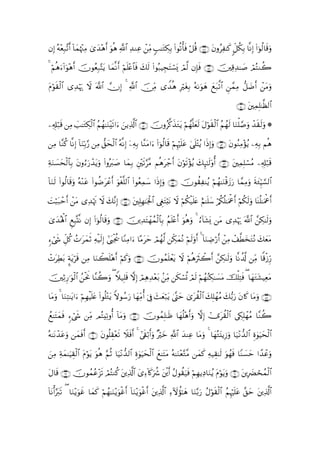 وَقَالُوٓا۟ إِنَّا بِكُلٍّ كَـٰفِرُونَ ﴿٤٨﴾ قُلْ فَأْتُوا۟ بِكِتَـٰبٍ مِّنْ عِندِ ٱللَّهِ هُوَ أَهْدَىٰ مِنْهُمَآ أَتَّبِعْهُ إِن
كُنتُمْ صَـٰدِقِينَ ﴿٤٩﴾ فَإِن لَّمْ يَسْتَجِيبُوا۟ لَكَ فَٱعْلَمْ أَنَّمَا يَتَّبِعُونَ أَهْوَآءَهُمْ ۚ
وَمَنْ أَضَلُّ مِمَّنِ ٱتَّبَعَ هَوَىٰهُ بِغَيْرِ هُدًى مِّنَ ٱللَّهِ ۚ إِنَّ ٱللَّهَ لَا يَهْدِى ٱلْقَوْمَ
ٱلظَّـٰلِمِينَ ﴿٥٠﴾
۞ وَلَقَدْ وَصَّلْنَا لَهُمُ ٱلْقَوْلَ لَعَلَّهُمْ يَتَذَكَّرُونَ ﴿٥١﴾ ٱلَّذِينَ ءَاتَيْنَـٰهُمُ ٱلْكِتَـٰبَ مِن قَبْلِهِۦ
هُم بِهِۦ يُؤْمِنُونَ ﴿٥٢﴾ وَإِذَا يُتْلَىٰ عَلَيْهِمْ قَالُوٓا۟ ءَامَنَّا بِهِۦٓ إِنَّهُ ٱلْحَقُّ مِن رَّبِّنَآ إِنَّا كُنَّا مِن
قَبْلِهِۦ مُسْلِمِينَ ﴿٥٣﴾ أُو۟لَـٰٓئِكَ يُؤْتَوْنَ أَجْرَهُم مَّرَّتَيْنِ بِمَا صَبَرُوا۟ وَيَدْرَءُونَ بِٱلْحَسَنَةِ
ٱلسَّيِّئَةَ وَمِمَّا رَزَقْنَـٰهُمْ يُنفِقُونَ ﴿٥٤﴾ وَإِذَا سَمِعُوا۟ ٱللَّغْوَ أَعْرَضُوا۟ عَنْهُ وَقَالُوا۟ لَنَآ
أَعْمَـٰلُنَا وَلَكُمْ أَعْمَـٰلُكُمْ سَلَـٰمٌ عَلَيْكُمْ لَا نَبْتَغِى ٱلْجَـٰهِلِينَ ﴿٥٥﴾ إِنَّكَ لَا تَهْدِى مَنْ أَحْبَبْتَ
وَلَـٰكِنَّ ٱللَّهَ يَهْدِى مَن يَشَآءُ ۚ وَهُوَ أَعْلَمُ بِٱلْمُهْتَدِينَ ﴿٥٦﴾ وَقَالُوٓا۟ إِن نَّتَّبِعِ ٱلْهُدَىٰ
مَعَكَ نُتَخَطَّفْ مِنْ أَرْضِنَآ ۚ أَوَلَمْ نُمَكِّن لَّهُمْ حَرَمًا ءَامِنًا يُجْبَىٰٓ إِلَيْهِ ثَمَرَٰتُ كُلِّ شَىْءٍ
رِّزْقًا مِّن لَّدُنَّا وَلَـٰكِنَّ أَكْثَرَهُمْ لَا يَعْلَمُونَ ﴿٥٧﴾ وَكَمْ أَهْلَكْنَا مِن قَرْيَةٍۭ بَطِرَتْ
مَعِيشَتَهَا ۖ فَتِلْكَ مَسَـٰكِنُهُمْ لَمْ تُسْكَن مِّنۢ بَعْدِهِمْ إِلَّا قَلِيلًا ۖ وَكُنَّا نَحْنُ ٱلْوَٰرِثِينَ ﴿٥٨﴾
وَمَا كَانَ رَبُّكَ مُهْلِكَ ٱلْقُرَىٰ حَتَّىٰ يَبْعَثَ فِىٓ أُمِّهَا رَسُولًا يَتْلُوا۟ عَلَيْهِمْ ءَايَـٰتِنَا ۚ وَمَا
كُنَّا مُهْلِكِى ٱلْقُرَىٰٓ إِلَّا وَأَهْلُهَا ظَـٰلِمُونَ ﴿٥٩﴾ وَمَآ أُوتِيتُم مِّن شَىْءٍ فَمَتَـٰعُ
ٱلْحَيَوٰةِ ٱلدُّنْيَا وَزِينَتُهَا ۚ وَمَا عِندَ ٱللَّهِ خَيْرٌ وَأَبْقَىٰٓ ۚ أَفَلَا تَعْقِلُونَ ﴿٦٠﴾ أَفَمَن وَعَدْنَـٰهُ
وَعْدًا حَسَنًا فَهُوَ لَـٰقِيهِ كَمَن مَّتَّعْنَـٰهُ مَتَـٰعَ ٱلْحَيَوٰةِ ٱلدُّنْيَا ثُمَّ هُوَ يَوْمَ ٱلْقِيَـٰمَةِ مِنَ
ٱلْمُحْضَرِينَ ﴿٦١﴾ وَيَوْمَ يُنَادِيهِمْ فَيَقُولُ أَيْنَ شُرَكَآءِىَ ٱلَّذِينَ كُنتُمْ تَزْعُمُونَ ﴿٦٢﴾ قَالَ
ٱلَّذِينَ حَقَّ عَلَيْهِمُ ٱلْقَوْلُ رَبَّنَا هَـٰٓؤُلَآءِ ٱلَّذِينَ أَغْوَيْنَآ أَغْوَيْنَـٰهُمْ كَمَا غَوَيْنَا ۖ تَبَرَّأْنَآ